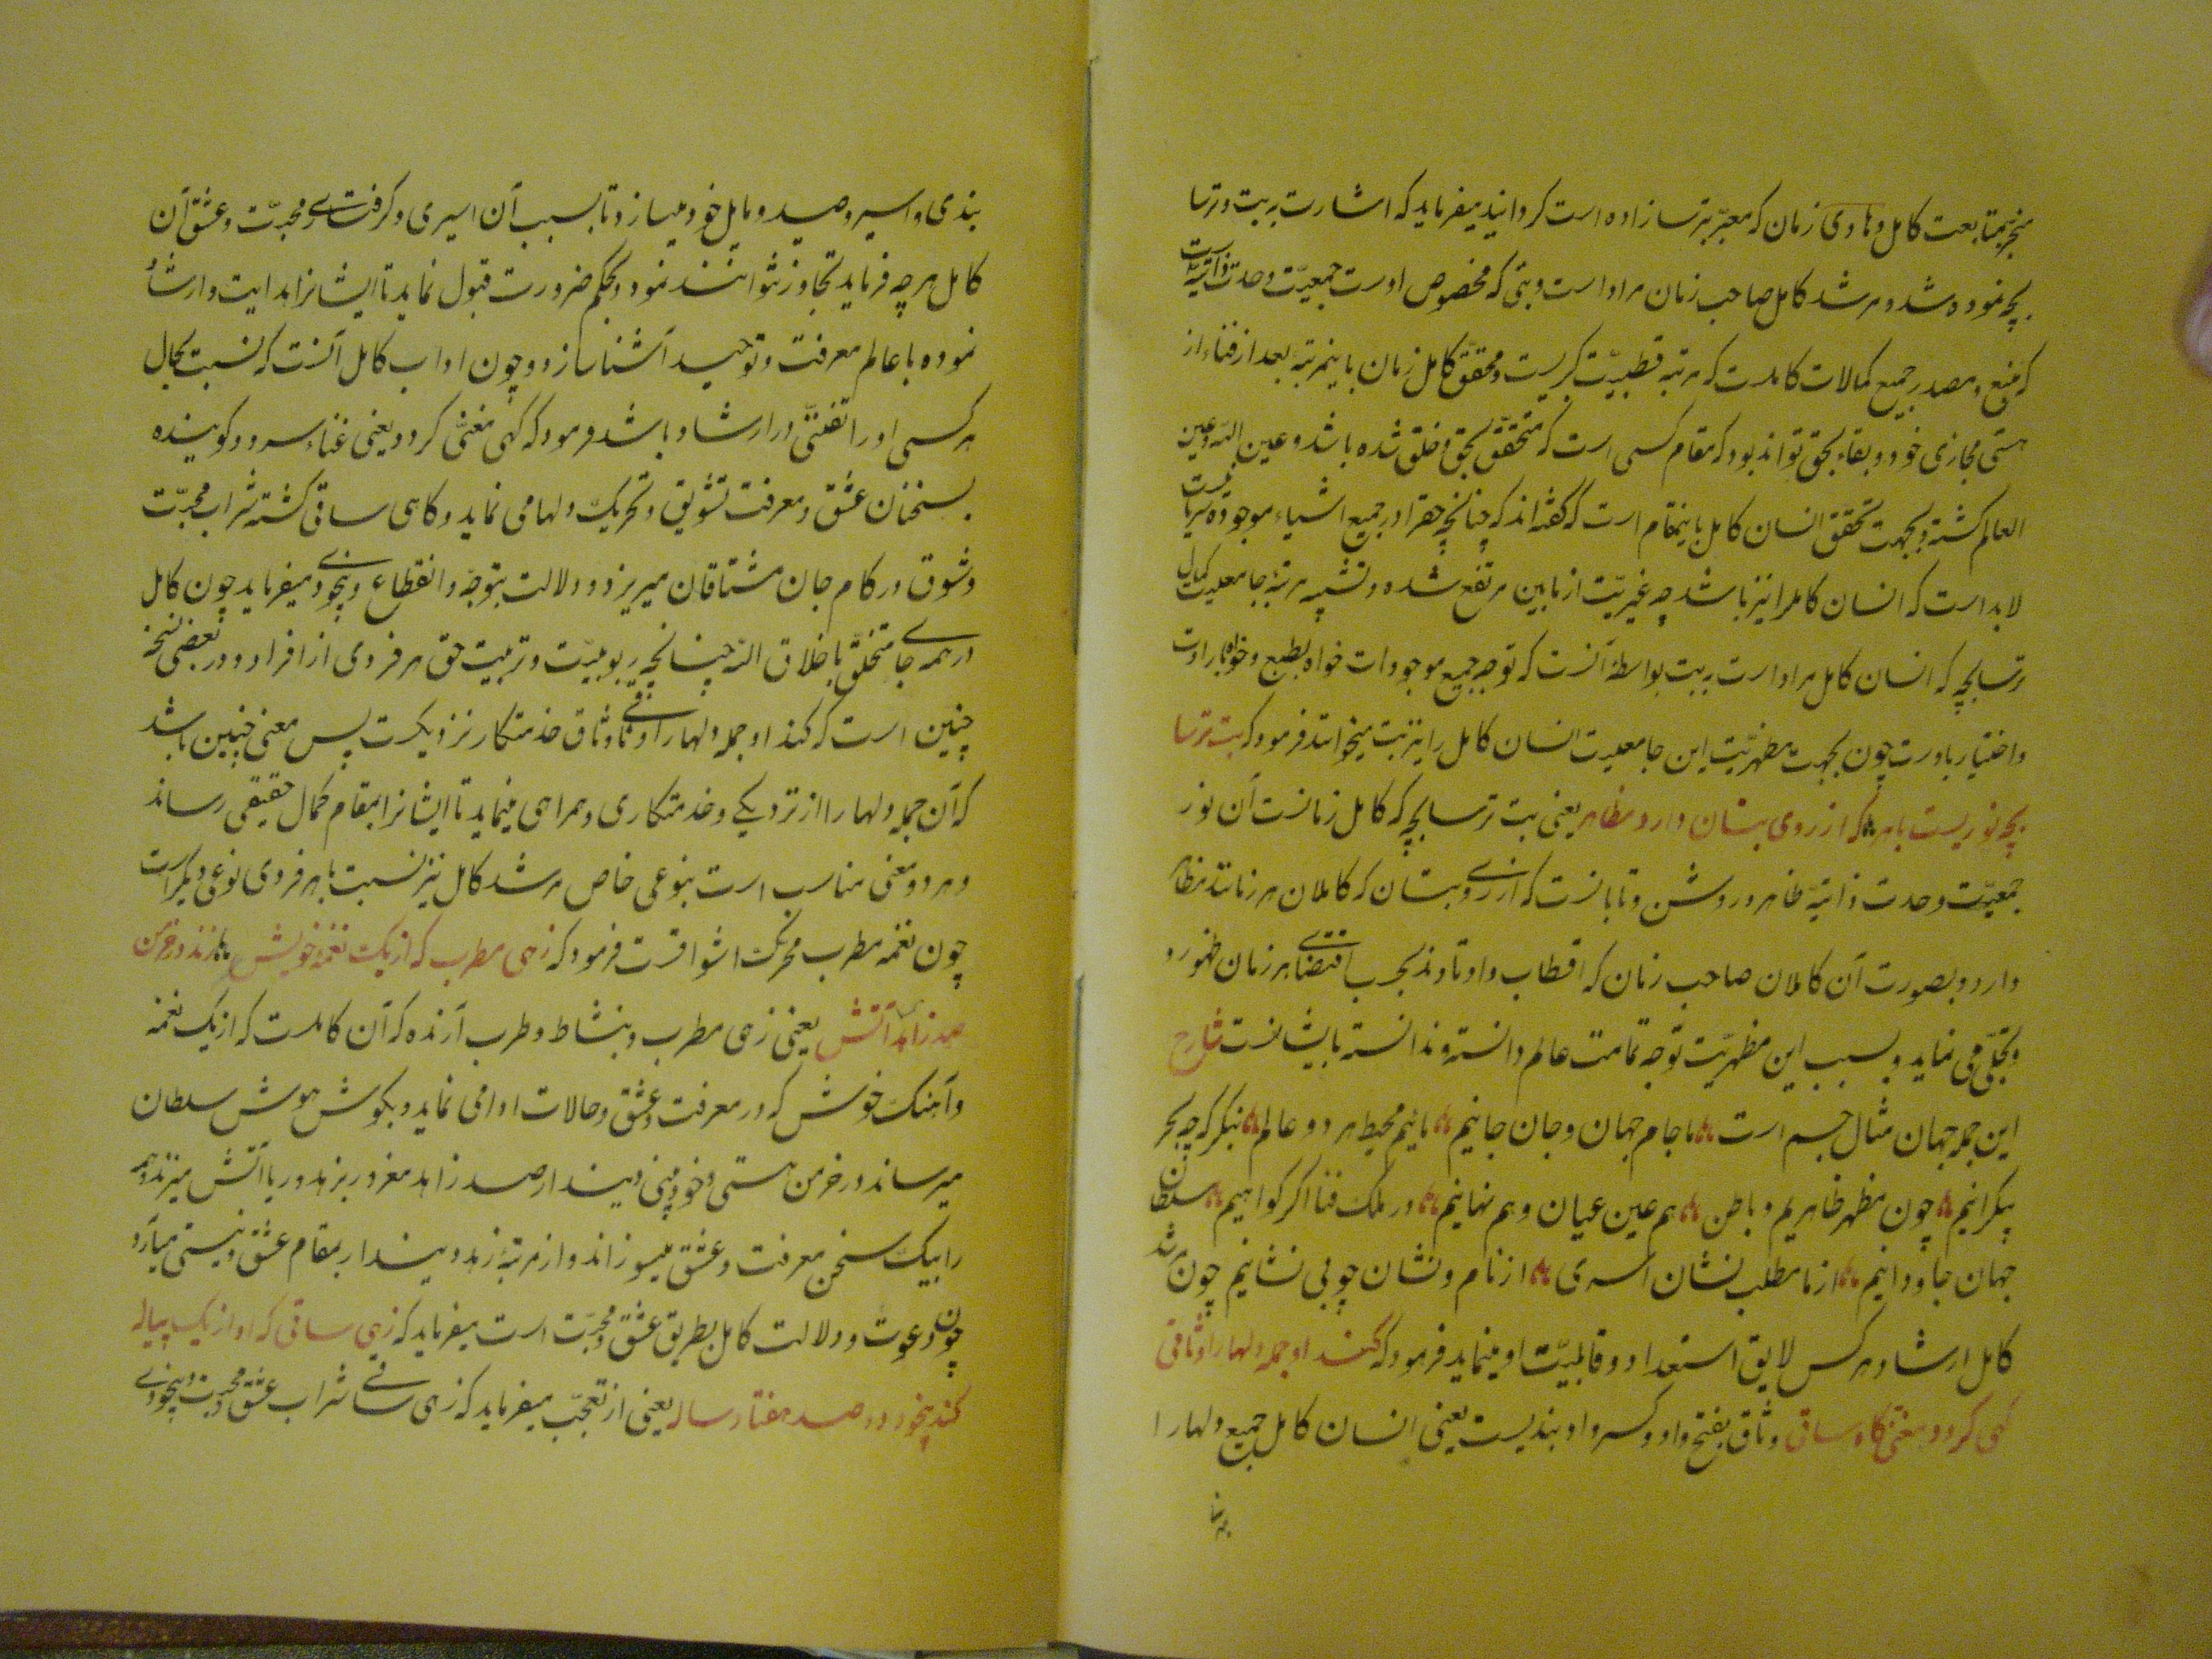 منجر بمتابعت کامل و هادی زمان که معبّر بترسازاده است کردانید میفرماید که اشارت به بت و ترسا
بچه نموده شد و مرشد کامل صاحب زمان مراد است و بتی که مخصوص اوست جمعیّت وحدت ذاتیّه است
که منبع و مصدر جمیع کمالات کاملست که مرتبه قطبیّت کبریست و محقّق کامل زمان باینمرتبه بعد از فناء از
هستی مجازی خود و بقاء بحق تواند بود که مقام کسی است که متحقّق بحق و خلق شده باشد و عین اللّه و عین
العالم کشته و بجهت تحقق انسان کامل باینمقام است که کفته اند که چنانچه حقرا در جمیع اشیاء موجوده سریانست
لابد است که انسان کاملرا نیز باشد چه غیریّت از مابین مرتفع شده و تشبیه مرتبهٔ جامعیت کمال
ترسابچه که انسان کامل مراد است به بت بواسطهٔ آنست که توجه جمیع موجودات خواه بطبع و خواه بارادت
و اختیار باوست چون بجهت مظهریّت این جامعیت انسان کامل را نیز بت میخوانند فرمود که بت ترسا
بچه نوریست باهر که از روی بتان دارد مظاهر یعنی بت ترسابچه که کامل زمانست آن نور
جمعیّت وحدت ذاتیّه ظاهر و روشن و تابانست که از روی بتان که کاملان هر زمانند مظاهر
دارد و بصورت آن کاملان صاحب زمان که اقطاب و اوتادند بحسب اقتضای هر زمان ظهور و
و تجلّی می نماید و بسبب این مظهریّت توجه تمامت عالم دانسته و ندانسته بایشانست شارح
این جمله جهان مثال جسم است ما جام جهان و جان جانیم مائیم محیط هر دو عالم بنکر که چه بحر
بیکرانیم چون مظهر ظاهریم و باطن هم عین عیان و هم نهانیم در ملک فنا اکر کواهیم سلطان
جهان جاودانیم از ما مطلب نشان اسیری از نام و نشان چو بی نشانیم چون مرشد
کامل ارشاد هر کس لایق استعداد و قابلیّت او مینماید فرمود که کند او جمله دلها را وثاقی
کهی کردد مغنّی کاه ساقی وثاق بفتح واو و کسر واو بندیست یعنی انسان کامل جمیع دلها را
بندی و اسیر و صید و مایل خود میسازد تا بسبب آن اسیری و کرفتاری و محبّت و عشق آن
کامل هر چه فرماید تجاوز نتوانند نمود و بحکم ضرورت قبول نماید تا ایشانرا هدایت و ارشاد
نموده با عالم معرفت و توحید آشنا سازد و چون اداب کامل آنست که نسبت بحال
هر کسی او را تفنّنی در ارشاد باشد فرمود که کهی مغنّی کردد یعنی غناء سرود کوینده
بسخنان عشق و معرفت تشویق و تحریک دلها می نماید و کاهی ساقی کشته شراب محبّت
و شوق در کام جان مشتاقان میریزد و دلالت بتوجّه و انقطاع و بیخودی میفرماید چون کامل
در همه جا متخلّق باخلاق اللّه چنانچه ربوبیّت و تربیت حق هر فردی از افراد و در بعضی نسخه
چنین است که کند او جمله دلها را وثاقی وثاق خدمتکار نزدیکست پس معنی چنین باشد
که آن جمله دلها را از نزدیکی و خدمتکاری و همراهی مینماید تا ایشانرا بمقام کمال حقیقی رساند
و هر دو معنی مناسب است بنوعی خاص مرشد کامل نیز نسبت با هر فردی نوعی دیکر است
چون نغمه مطرب محرّک اشواقست فرمود که زهی مطرب که از یک نغمهٔ خویش زند در خرمن
صد زاهد آتش یعنی زهی مطرب و بنشاط و طرب آرنده که آن کاملست که از یک نغمه
و آهنک خوش که در معرفت و عشق و حالات ادا می نماید و بکوش هوش سلطان
میرساند در خرمن هستی و خودبینی و پندار صد زاهد مغرور بزهد و ریا آتش میزند و همه
را بیک سخن معرفت و عشق میسوزاند و از مرتبهٔ زهد و پندار بمقام عشق و نیستی میآرد
چون دعوت و دلالت کامل بطریق عشق و محبّت است میفرماید که زهی ساقی که او از یک پیاله
کند بیخود دو صد هفتاد ساله یعنی از تعجّب میفرماید که زهی ساقی شراب عشق و محبّت و بیخودی